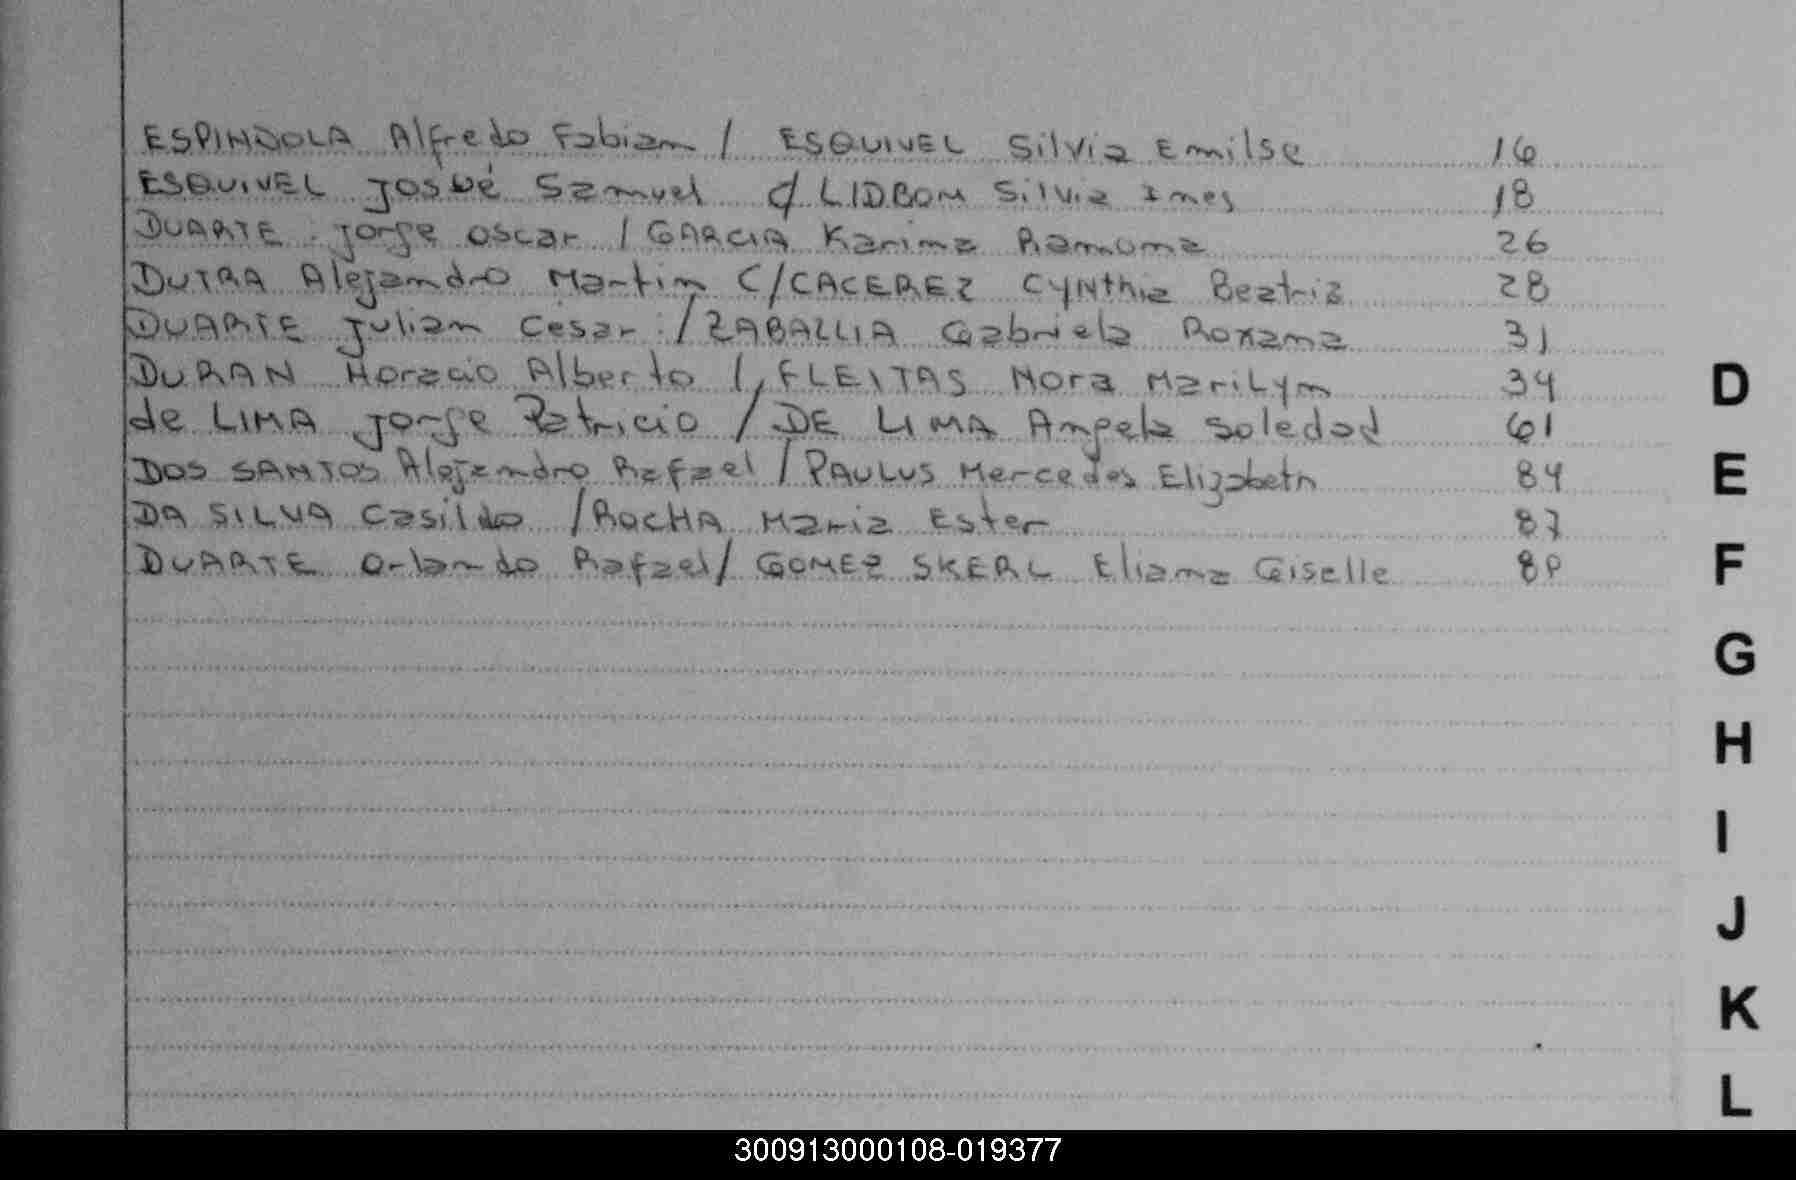 ESPINDOLA Alfredo Fabian / ESQUIVEL Silvia Emilse 16
ESQUIVEL Josué Samuel c/ LIDBOM Silvia Ines 18
DUARTE Jorge Oscar / GARCIA Karina Ramona 26
DUTRA Alejandro Martin C/CACEREZ Cynthia Beatriz 28
DUARTE Julian Cesar / ZABALLIA Gabriela Roxana 31
DURAN Horacio Alberto / FLEITAS Nora Marilyn 34
de LIMA Jorge Patricio / DE LIMA Angela Soledad 61
DOS SANTOS Alejandro Rafael / PAULUS Mercedes Elizabeth 84
DA SILVA Casildo / ROCHA Maria Ester 87
DUARTE Orlando Rafael / GOMEZ SKERL Eliana Giselle
D
E
F
G
H
I
J
K
L
300913000108-019377